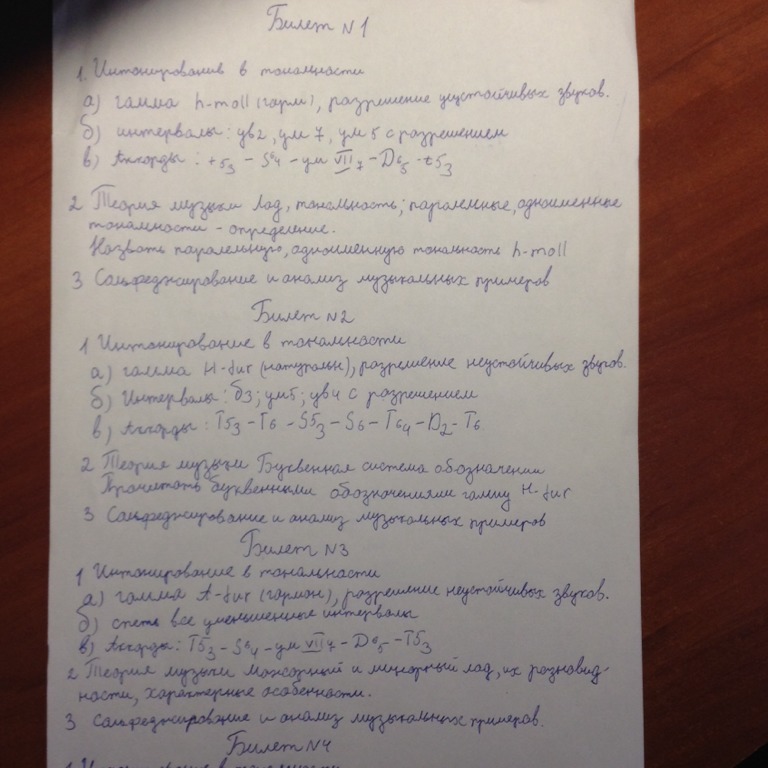 Билет N 1
1. Интонирование в тональности
а) гамма h-moll (гарм), разрешение неустойчивых звуков.
б) интервалы: ув2, ум 7, ум 5 с разрешением
в) Аккорды: t53 - S64 - ум VII7 - D65 - t53
2 Теория музыки Лад, тональность; параллельные, одноименные
тональности - определение.
Назвать параллельную, одноименную тональность h-moll
3 Сольфеджирование и анализ музыкальных примеров
Билет N2
1 Интонирование в тональности
а) гамма H-dur (натуральн), разрешение неустойчивых звуков.
б) Интервалы: б3; ум5; ув4 с разрешением
в) Аккорды: T53 - T6 - S53 - S6 - T64 - D2 - T6
2 Теория музыки Буквенная система обозначении
Прочитать буквенными обозначениями гамму H-dur
3 Сольфеджирование и анализ музыкальных примеров
Билет N3
1 Интонирование в тональности
а) гамма A-dur (гармон), разрешение неустойчивых звуков.
б) спеть все уменьшенные интервалы
в) Аккорды: T53 - S64 - ум VII7 - D65 - T53
2 Теория музыки Мажорный и минорный лад, их разновид-
ности, характерные особенности.
3 Сольфеджирование и анализ музыкальных примеров.
Билет N4
1 Интонирование в тональности